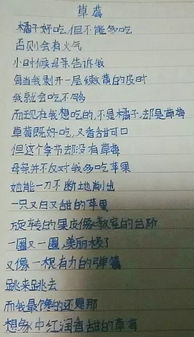 草莓
橘子好吃,但不能多吃
否则会有火气
小时候母亲告诉我
每当我剥开一层绿黄的皮时
我就会吃不够
而现在我想吃的,不是橘子,却是草莓
草莓既好吃,又香甜可口
但这个季节却没有草莓
母亲并不反对我多吃苹果
她能一刀不断地削出
一只又白又甜的苹果
旋转的果皮像教室的台阶
一圈又一圈,美丽极了
又像一根有力的弹簧
跳来跳去
而我最馋的还是那
想象中红润香甜的草莓